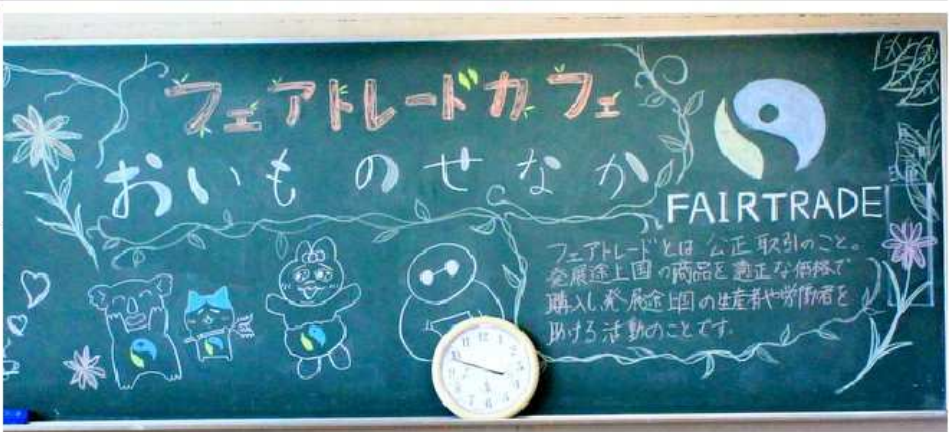 フェアトレードカフェ
おいものせなか
FAIRTRADE
フェアトレードとは公正取引のこと。
発展途上国の商品を適正な価格で
購入し発展途上国の生産者や労働者を
助ける活動のことです。